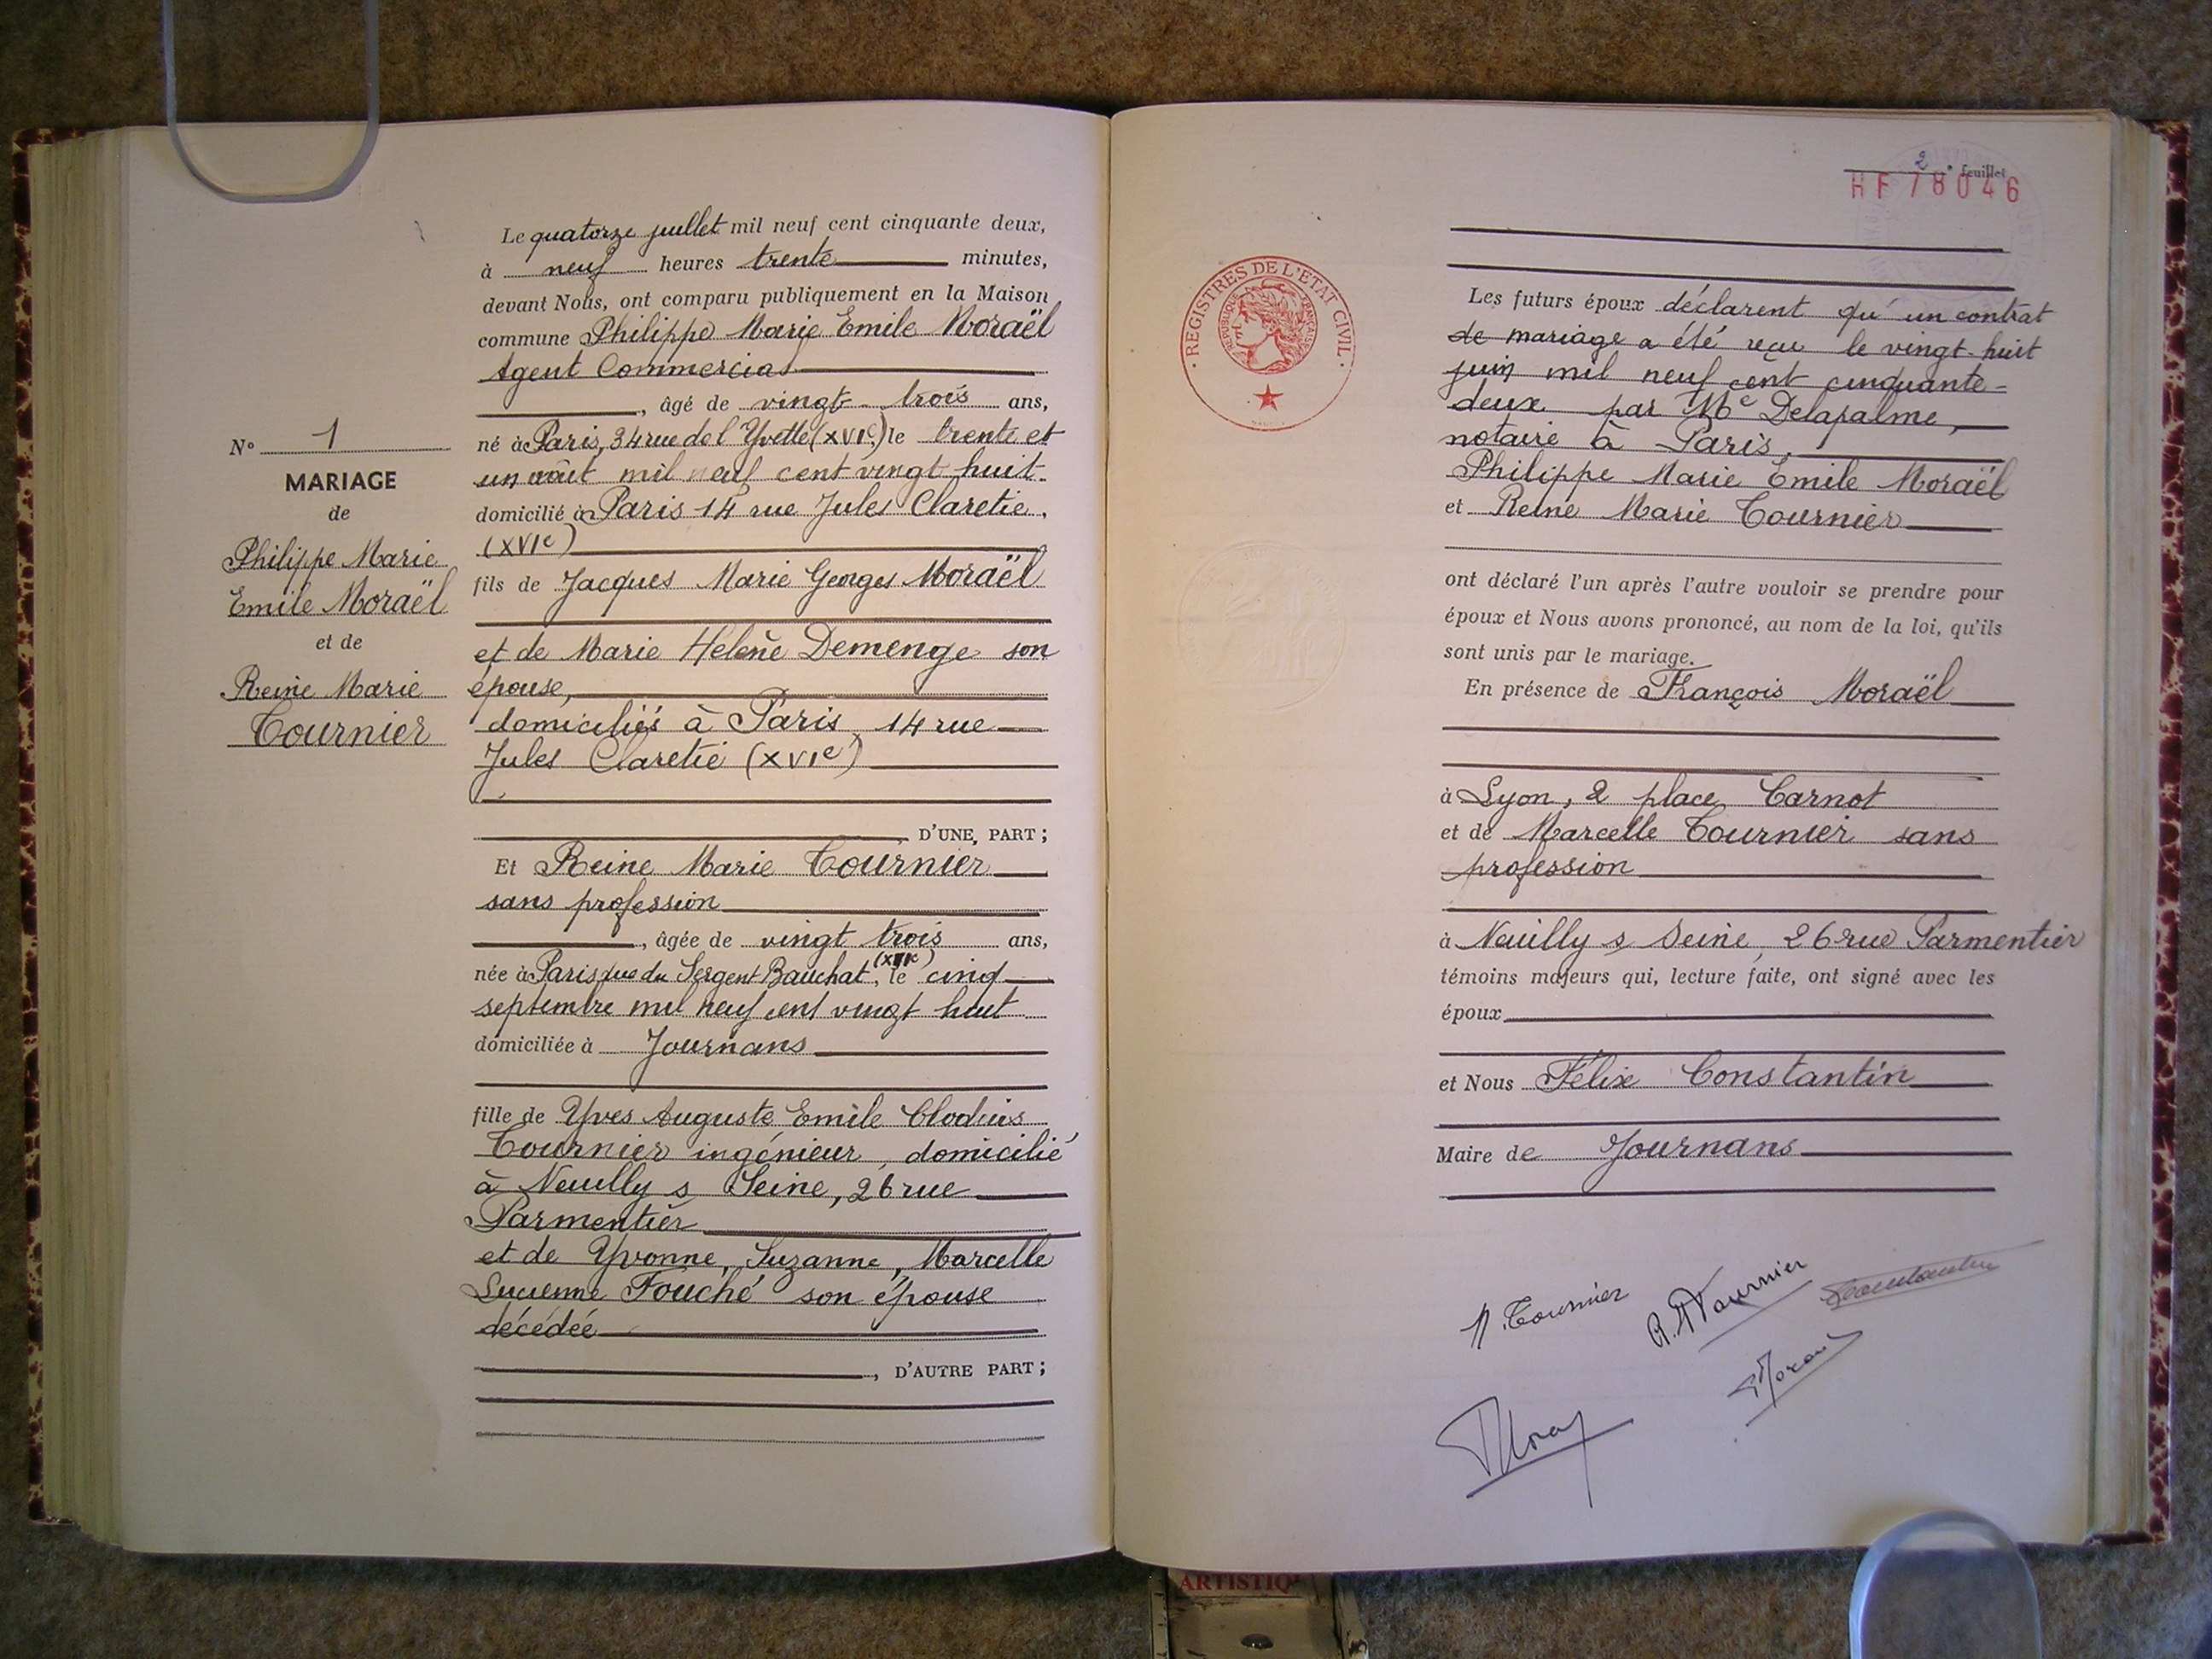 Le quatorze juillet mil neuf cent cinquante deux,
à neuf heures trente minutes,
devant Nous, ont comparu publiquement en la Maison
commune Philippe Marie Emile Moraël
Agent Commercial
, âgé de vingt-trois ans,
né à Paris, 34 rue de l'Yvette (XVIe) le trente et
un août mil neuf cent vingt huit
domicilié à Paris 14 rue Jules Claretie.
(XVIe)
fils de Jacques Marie Georges Moraël
et de Marie Helène Demenge son
épouse,
domiciliés à Paris 14 rue
Jules Claretie (XVIe)
D'UNE PART;
Et Reine Marie Tournier
sans profession
, âgée de vingt trois ans,
née à Paris rue du Sergent Bauchat, le cinq
septembre mil neuf cent vingt huit
domiciliée à Journans
fille de Yves Auguste Emile Clodius
Tournier ingénieur, domicilié
à Neuilly s Seine, 26 rue
Parmentier
et de Yvonne, Suzanne, Marcelle
Lucienne Fouché son épouse
décédée
, D'AUTRE PART;
N° 1
MARIAGE
de
Philippe Marie
Emile Moraël
et de
Reine Marie
Tournier
2e feuillet
HF 78046
REGISTRES DE L'ETAT CIVIL
REPUBLIQUE FRANÇAISE
Les futurs époux déclarent qu'un contrat
de mariage a été reçu le vingt-huit
juin mil neuf cent cinquante-
deux par Me Delapalme,
notaire à Paris,
Philippe Marie Emile Moraël
et Reine Marie Tournier
ont déclaré l'un après l'autre vouloir se prendre pour
époux et Nous avons prononcé, au nom de la loi, qu'ils
sont unis par le mariage.
En présence de François Moraël
à Lyon, 2 place Carnot
et de Marcelle Tournier sans
profession
à Neuilly s Seine, 26 rue Parmentier
témoins majeurs qui, lecture faite, ont signé avec les
époux
et Nous Félix Constantin
Maire de Journans
M. Tournier
R. M Tournier
Constantin
ARTISTIQ